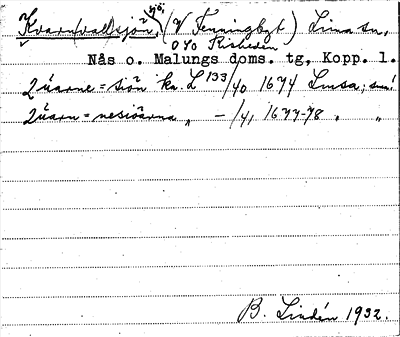 Kvarnvallsjön, sjö, (V Fenningbyt) Lima sn,
o Ö Risheden
Nås o. Malungs doms. tg, Kopp. l.
Quarne=siön kn. L 133/40 1674 Lmsa; små!
Quarn=nesiöärna „ – /41 1677-78 „ „
B. Lindén 1932.